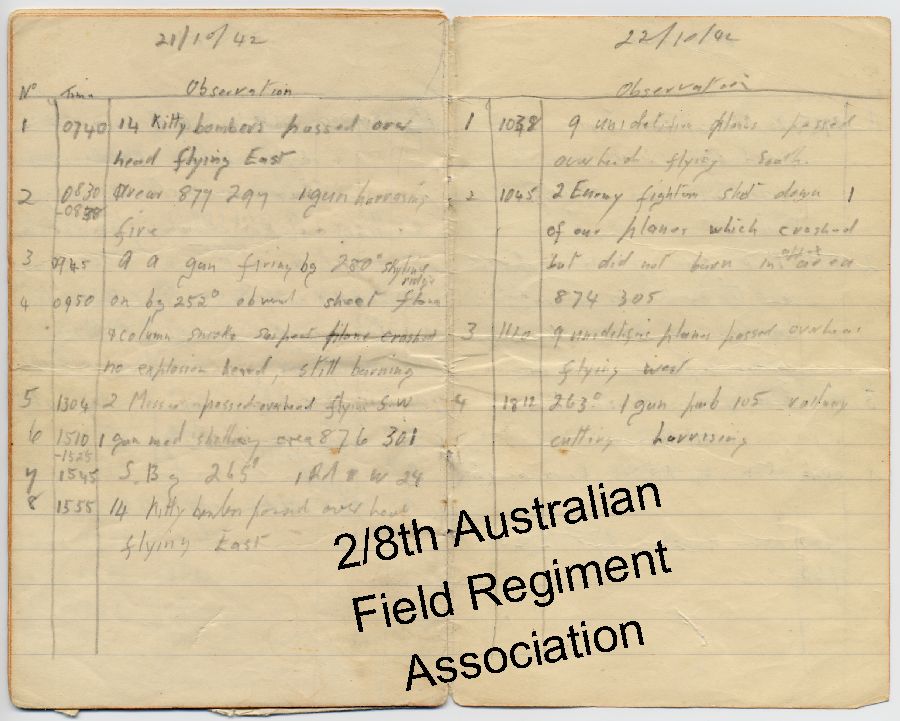 21/10/42
No Time Observation
1 0740 14 Kitty bombers passed over
head flying East
2 0830 area 877 299 1 gun harrasing
-0838 fire
3 0945 A A gun firing bg 280° skyline
ridge
4 0950 on bg 252° sheet flame
& column smoke suspect plane crashed
no explosion heard, still burning
5 1304 2 Messer passed overhead flying S.W
6 1510 1 gun med shelling area 876 301
-1525
7 1545 S.Bg 265°
8 1555 14 Kitty bombers passed over head
flying East
22/10/42
Observation
1 1038 9 planes passed
overhead flying South.
2 1045 2 Enemy fighters shot down 1
of our planes which crashed
but did not burn in area
874 305
3 1120 9 planes passed overhead
flying west
4 1812 263° 1 gun 105 railway
cutting harrasing
2/8th Australian
Field Regiment
Association